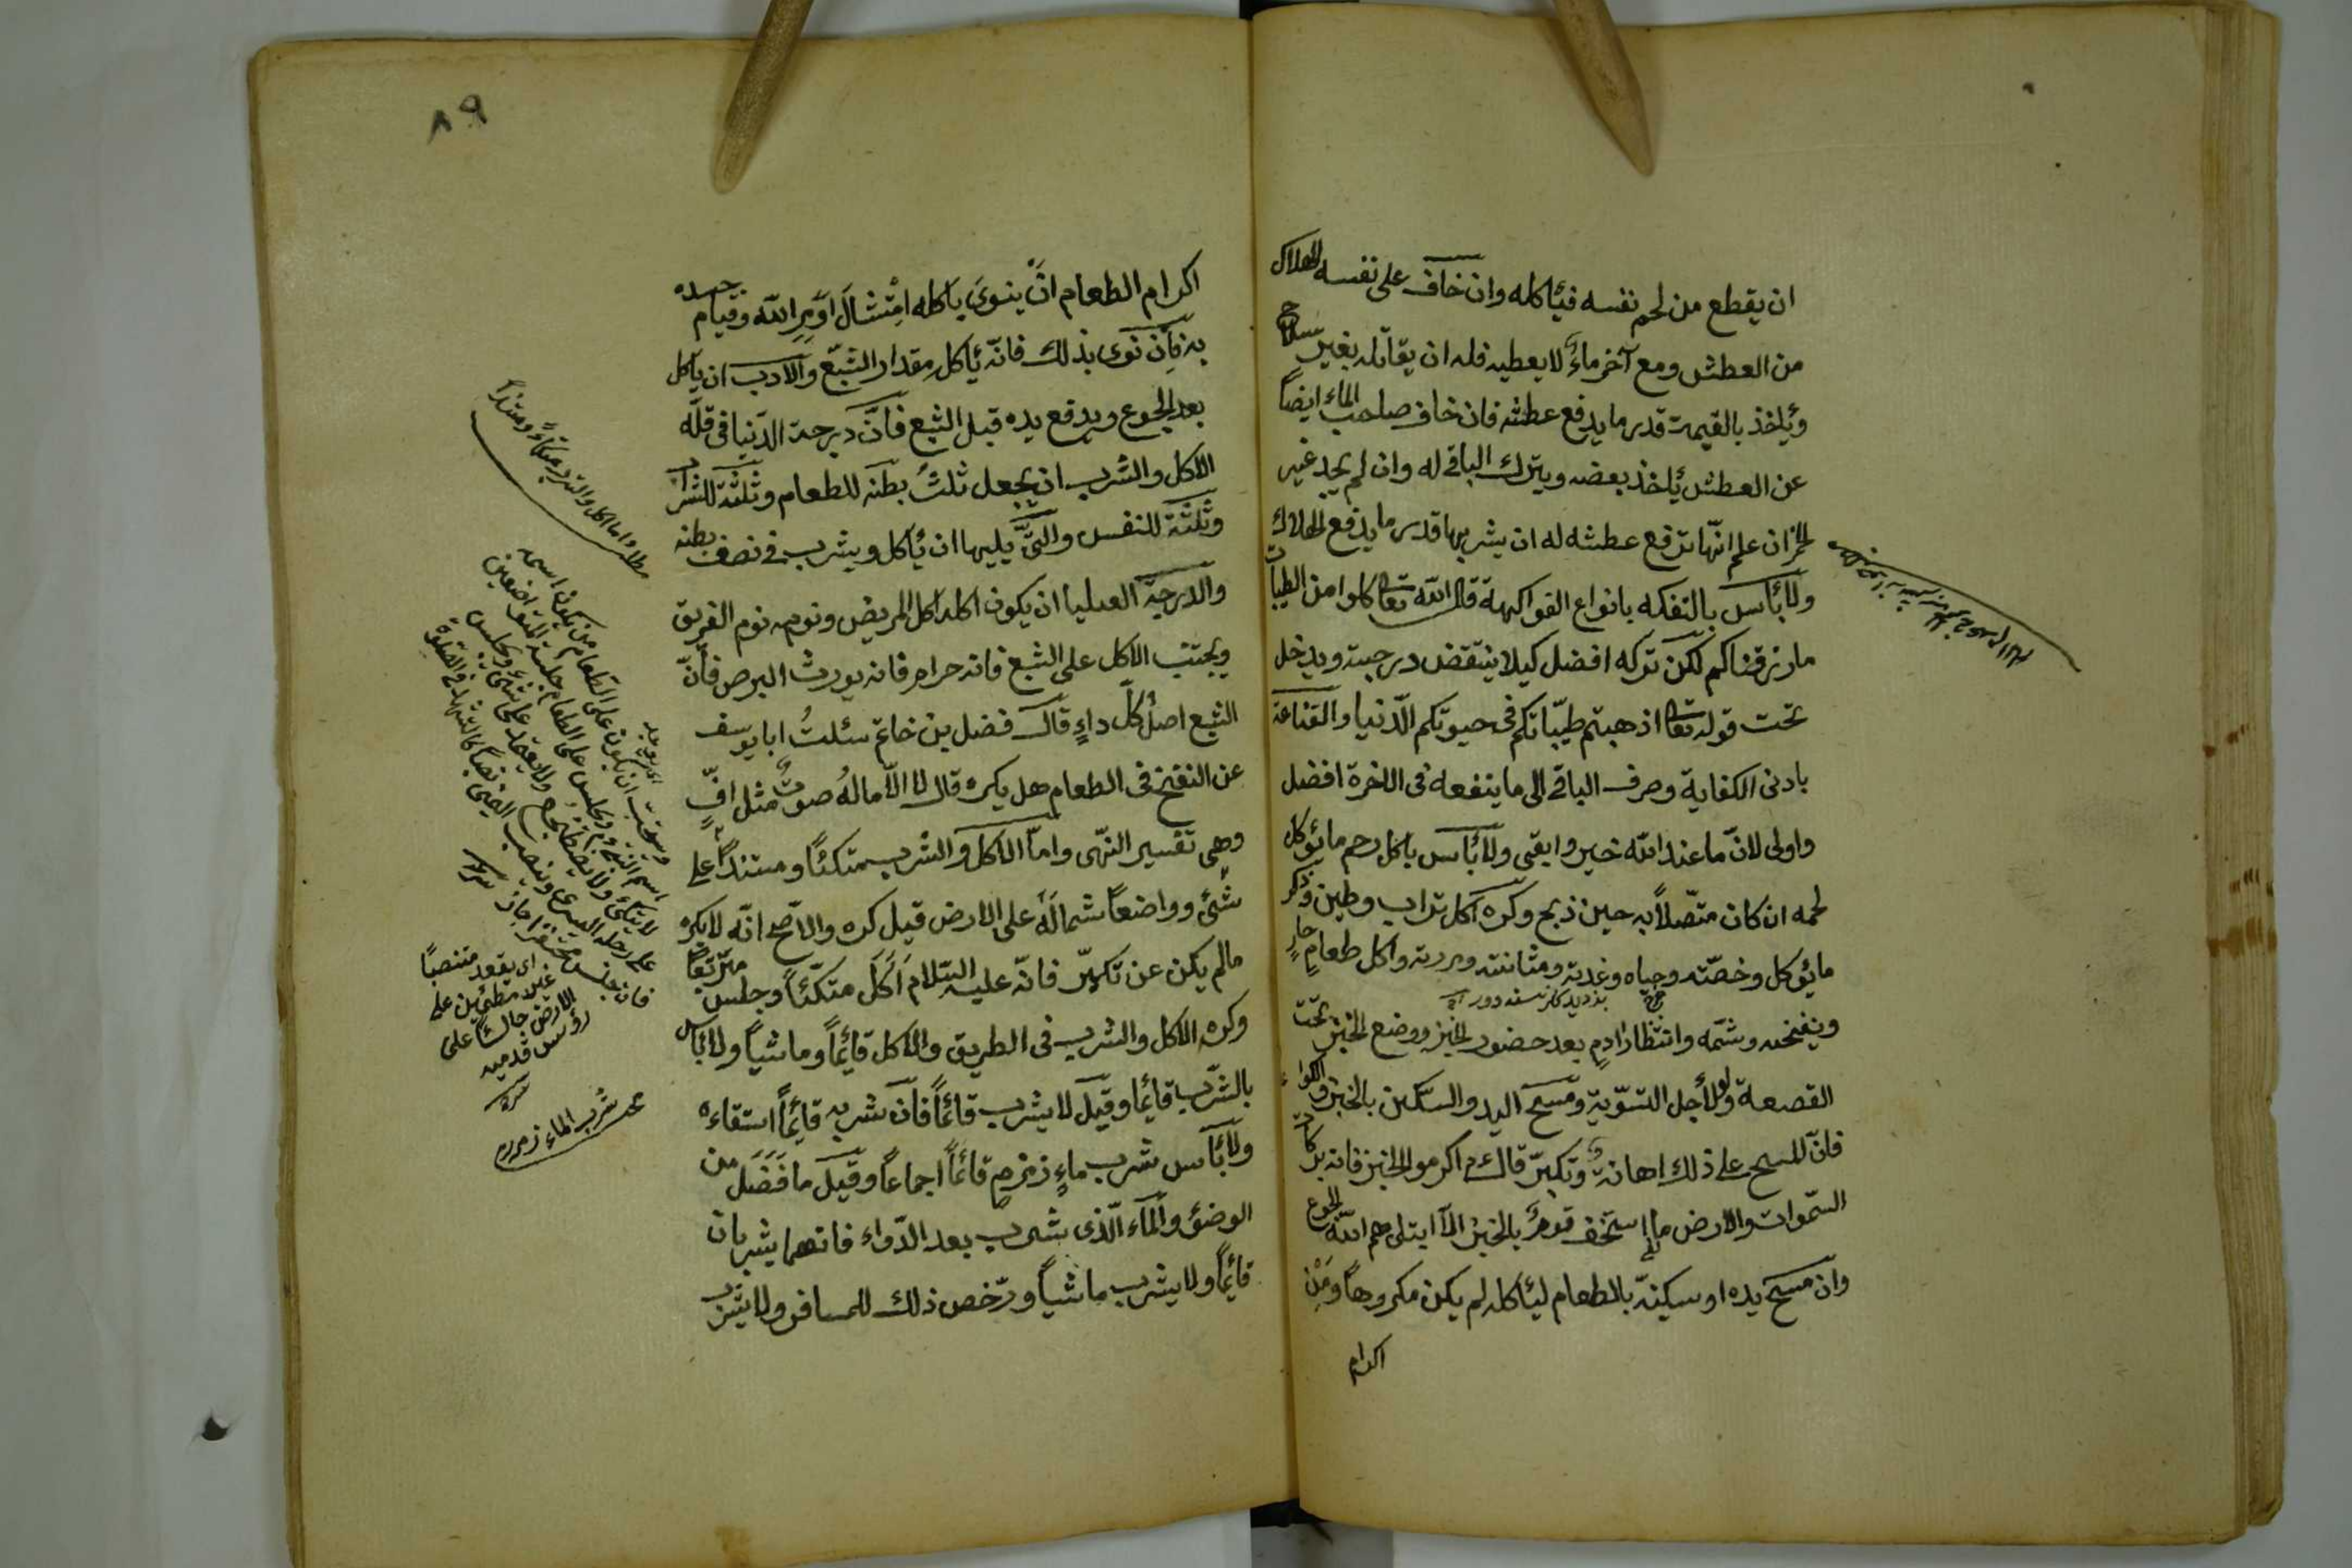 ان يقطع من لحم نفسه فيئاكله وان خاف على نفسه الهلاك
من العطش ومع آخر ماءٌ لا يعطيه فله ان يقاتله بغير سلاح
ويأخذ بالقيمة قدر ما يدفع عطشه فان خاف صاحب الماء ايضاً
عن العطش يأخذ بعضه ويترك الباقى له وان لم يجد غير
الخمر ان علم انّها تدفع عطشه له ان يشربها قدر ما يدفع الهلاك
ولا بأس بالتفكه بانواع الفواكهة قال الله تعا كلوا من الطيبات
ما رزقناكم لكن تركه افضل كيلا ينتقض درجته ويدخل
تحت قوله تعا اذهبتم طيّباتكم فى حيوتكم الدّنيا والقناعة
بادنى الكفاية وصرف الباقى الى ما ينفعه فى الاخرة افضل
واولى لانّ ما عند الله خير وابقى ولا بأس باكل رحم مايؤكل
لحمه ان كان متّصلاً به حين ذبح وكره اكل تراب وطين وذكر
مايؤكل وخصّته وحياه وغدته ومثانته ومررته واكل طعامٍ حارٍ
وينفخه وشمّه وانتظار ادمٍ بعد حضور الخبز ووضع الخبز تحت
القصعة ولو لأجل التسّوية ومسح اليد والسّكين بالخبز والكواء
فانّ المسح على ذلك اهانةٌ وتكبرّ قال ءم اكرموا الخبز فانه بركات
السّموات والارض ما استخف قومٌ بالخبز الّا ابتلى هم الله الجوع
وان مسح يده او سكينه بالطعام ليأكله لم يكن مكروهاً ومِنْ
اكرام
٨٩
اكرام الطعام انْ ينوىَ بأكله امْتثالَ اوَمِر الله وقيام جسده
به فإن نوى بذلك فانّه يأكل مقدار الشّبع والادب ان يأكل
بعد الجوع ويدفع يده قبل الشبع فانّ درجة الدّنيا فى قلّه
الاكل والشرب ان يجعل ثلثُ بطنه للطعام وثلثة للشراب
وثلثة للنفس والتى يليها ان يأكل ويشرب فى نصف بطنه
والدرجة العليا ان يكون اكله اكل المريض ونومه نوم الغريق
ويجتنب الاكل على الشبع فانه حرام فانه يورث البرص فانّ
الشبع اصلُ كلّ داءٍ قال فضل بن خاتم سئلتُ ابا يوسف
عن النفخ فى الطعام هل يكره قال لا الّا ماله صوتٌ مثل افّ
وهى تفسير النّهى وامّا الاكل والشرب متكئاً ومستنداً على
شئ وواضعاً شماله على الارض قيل كره والاصّح انّه لا يكره
مالم يكن عن تكبرّ فانّه عليه السّلام اَكَلَ متكئاً وجلس متربّعاً
وكره الاكل والشرب فى الطريق والاكل قائماً وماشياً ولا بأس
بالشّرب قائماً وقيل لا يشرب قائماً فان شربه قائماً استقاءه
ولا بأس شرب ماءٍ زمزمٍ قائماً اجماعاً وقيل ما فَضَل من
الوضوء والماء الّذى شرب بعد الدّواء فانهما يشربان
قائماً ولا يشرب ماشياً ورّخص ذلك للمسافر ولا يشرب
مط واما اكل والشرب متكاءً ومستنداً
ويستحب ان يكون على الطعام من يكون اسمه
لا يتكئ ولا يضطجع ولا يعتمد على شئ ويجلس
على رجله اليسرى وينصب اليمنى
اى يقعد منتصباً
غير مطمئن على
الارض جالساً على
رؤس قدميه
شرب الماء زمزم